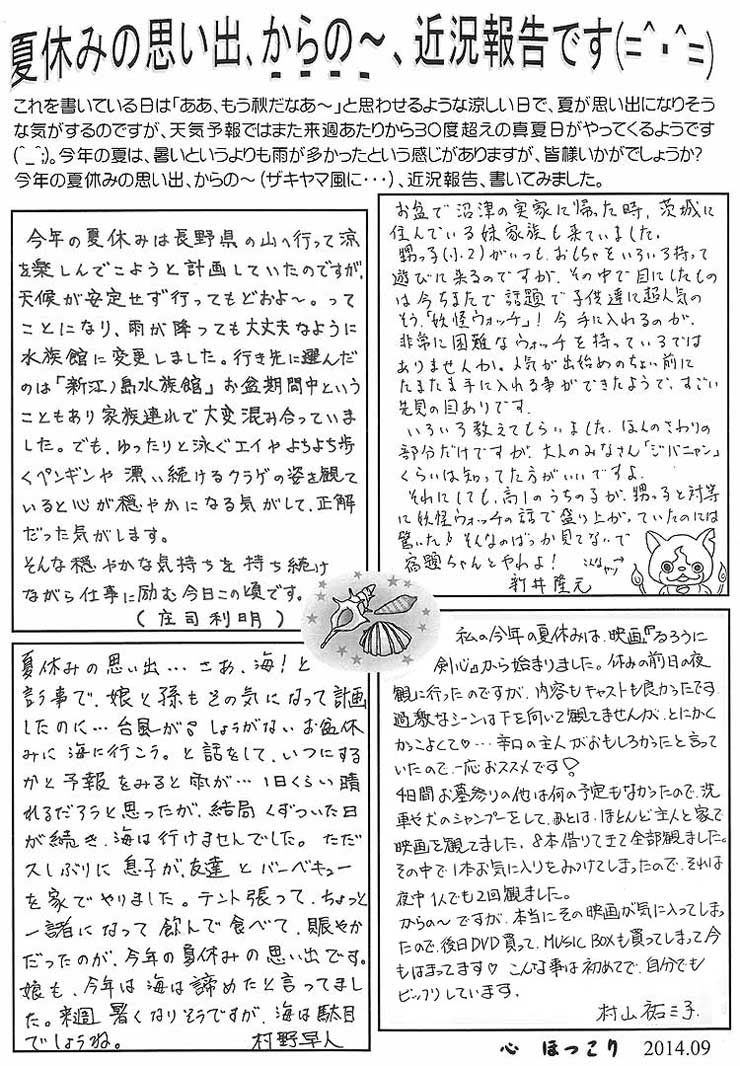 夏休みの思い出、からの〜、近況報告です(=^・^=)
これを書いている日は「ああ、もう秋だなあ〜」と思わせるような涼しい日で、夏が思い出になりそう
な気がするのですが、天気予報ではまた来週あたりから30度超えの真夏日がやってくるようです
(^_^;)。今年の夏は、暑いというよりも雨が多かったという感じがありますが、皆様いかがでしょうか?
今年の夏休みの思い出、からの〜(ザキヤマ風に・・・)、近況報告、書いてみました。
今年の夏休みは長野県の山へ行って涼
を楽しんでこようと計画していたのですが、
天候が安定せず行ってもどおよ〜。って
ことになり、雨が降っても大丈夫なように
水族館に変更しました。行き先に選んだ
のは「新江ノ島水族館」お盆期間中という
こともあり家族連れで大変混み合っていま
した。でも、ゆったりと泳ぐエイやよちよち歩
くペンギンや漂い続けるクラゲの姿を観て
いると心が穏やかになる気がして、正解
だった気がします。
そんな穏やかな気持ちを持ち続け
ながら仕事に励む今日この頃です。
(庄司利明)
お盆で沼津の実家に帰った時、茨城に
住んでいる妹家族も来ていました。
甥っ子(小2)がいつも、おもちゃをいろいろ持って
遊びに来るのですが、その中で目にしたもの
は今ちまたで話題で子供達に超人気の
そう、「妖怪ウォッチ」!今手に入れるのが、
非常に困難なウォッチを持っているでは
ありませんか。人気が出始めのちょい前に
たまたま手に入れる事ができたようで、すごい
先見の目ありです。
いろいろ教えてもらいました。ほんのさわりの
部分だけですが、大人のみなさん「ジバニャン」
くらいは知ってた方がいいですよ。
それにしても、高1のうちの子が、甥っ子と対等
に妖怪ウォッチの話で盛り上がっていたのには
驚いた!そんなのばっか見てないで
宿題ちゃんとやれよ!
こんなヤツ
新井隆元
夏休みの思い出…さあ、海!と
言う事で、娘と孫もその気になって計画
したのに…台風が。しょうがないお盆休
みに海に行こう。と話をして、いつにする
かと予報をみると雨が…1日くらい晴
れるだろうと思ったが、結局くずついた日
が続き、海は行けませんでした。ただ
久しぶりに息子が、友達とバーベキュー
を家でやりました。テント張って、ちょっと
一諸になって飲んで食べて、賑やか
だったのが、今年の夏休みの思い出です。
娘も、今年は海は諦めたと言ってまし
た。来週暑くなりそうですが、海は駄目
でしょうね。 村野早人
私の今年の夏休みは、映画『るろうに
剣心』から始まりました。休みの前日の夜
観に行ったのですが、内容もキャストも良かったです。
過激なシーンは下を向いて観てませんが、とにかく
かっこよくて♡…辛口の主人がおもしろかったと言って
いたので、一応おススメです♡
4日間お墓参りの他は何の予定もなかったので、洗
車や犬のシャンプーをして、あとは、ほとんど主人と家で
映画を観てました。8本借りてきて全部観ました。
その中で1本お気に入りをみつけてしまったので、それは
夜中1人でも2回観ました。
からの〜ですが、本当にその映画が気に入ってしまっ
たので、後日DVD買って、MUSIC BOXも買ってしまって今
もはまってます♡こんな事は初めてで、自分でも
ビックリしています。
村山祐三子
心 ほっこり 2014.09